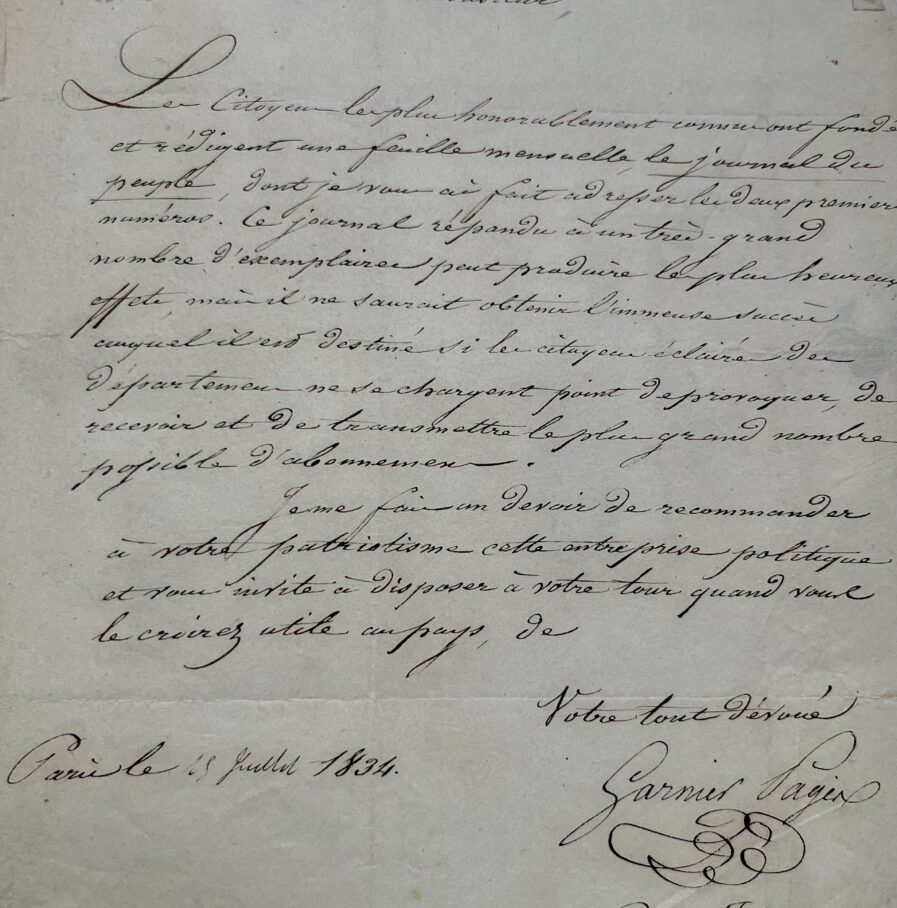 Monsieur,
Les Citoyens les plus honorablement connus ont fondé
et rédigent une feuille mensuelle, le journal du
peuple, dont je vous ai fait adresser les deux premiers
numéros. Ce journal répandu à un très-grand
nombre d'exemplaires peut produire les plus heureux
effets, mais il ne saurait obtenir l'immense succès
auquel il est destiné si les citoyens éclairés des
départemens ne se chargent point de provoquer, de
recevoir et de transmettre le plus grand nombre
possible d'abonnemens.
Je me fais un devoir de recommander
à votre patriotisme cette entreprise politique
et vous invite à disposer à votre tour quand vous
le croirez utile au pays, de
Votre tout dévoué
Paris le Juillet 1834.
Garnier Pagès